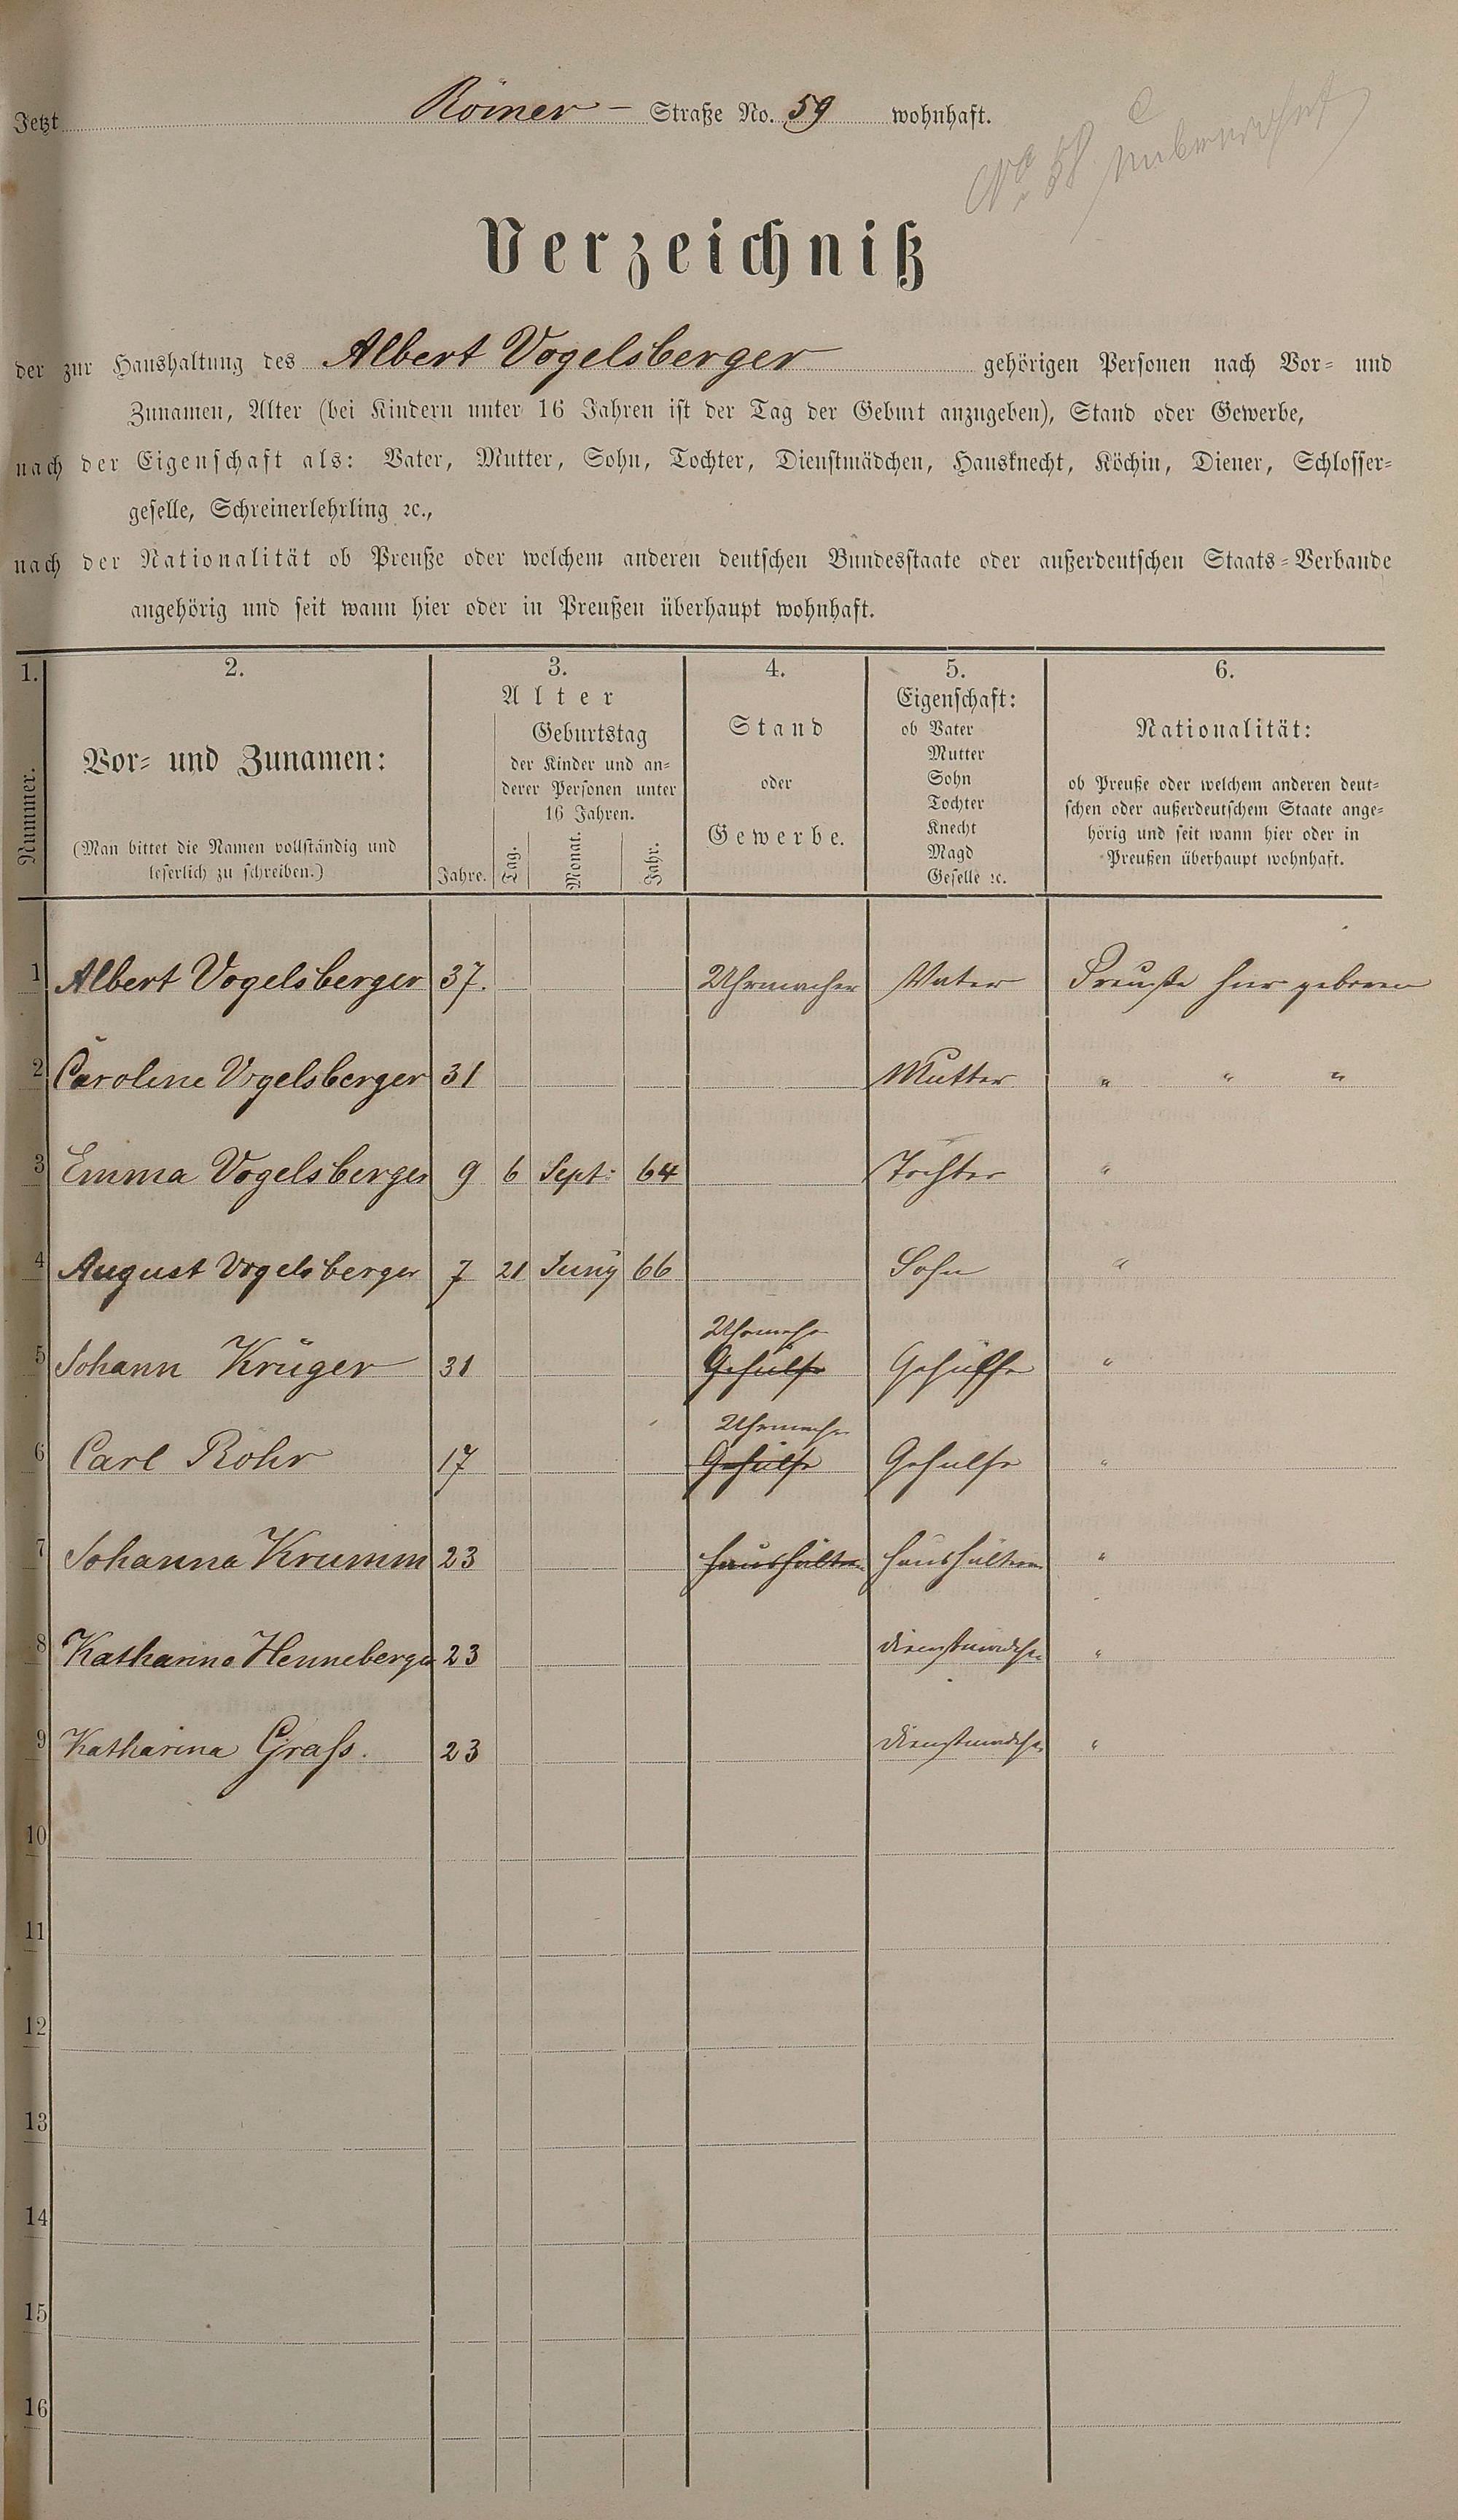 Jetzt Römer - Straße No. 59 wohnhaft.
No 58 unbewohnt
Verzeichniß
der zur Haushaltung des Albert Vogelsberger gehörigen Personen nach Vor- und
Zunamen, Alter (bei Kindern unter 16 Jahren ist der Tag der Geburt anzugeben), Stand oder Gewerbe,
nach der Eigenschaft als: Vater, Mutter, Sohn, Tochter, Dienstmädchen, Hausknecht, Köchin, Diener, Schlosser-
geselle, Schreinerlehrling ꝛc.,
nach der Nationalität ob Preuße oder welchem anderen deutschen Bundesstaate oder außerdeutschen Staats-Verbande
angehörig und seit wann hier oder in Preußen überhaupt wohnhaft.
1.
Nummer.
2.
Vor- und Zunamen:
(Man bittet die Namen vollständig und
leserlich zu schreiben.)
3.
Alter
Jahre.
Geburtstag
der Kinder und an-
derer Personen unter
16 Jahren.
Tag. Monat. Jahr.
4.
Stand
oder
Gewerbe.
5.
Eigenschaft:
ob Vater
Mutter
Sohn
Tochter
Knecht
Magd
Geselle ꝛc.
6.
Nationalität:
ob Preuße oder welchem anderen deut-
schen oder außerdeutschem Staate ange-
hörig und seit wann hier oder in
Preußen überhaupt wohnhaft.
1 Albert Vogelsberger 37. Uhrmacher Vater Preuße hier geboren
2 Caroline Vogelsberger 31 Mutter " " "
3 Emma Vogelsberger 9 6 Sept: 64 Tochter "
4 August Vogelsberger 7 21 Juny 66 Sohn "
Uhrmach
5 Johann Krüger 31 Gehülfe Gehülfe "
Uhrmach
6 Carl Rohr 17 Gehülfe Gehülfe "
7 Johanna Krumm 23 Haushälterin Haushälterin "
8 Katharina Henneberger 23 Dienstmädchen "
9 Katharina Graß. 23 Dienstmädchen "
10
11
12
13
14
15
16